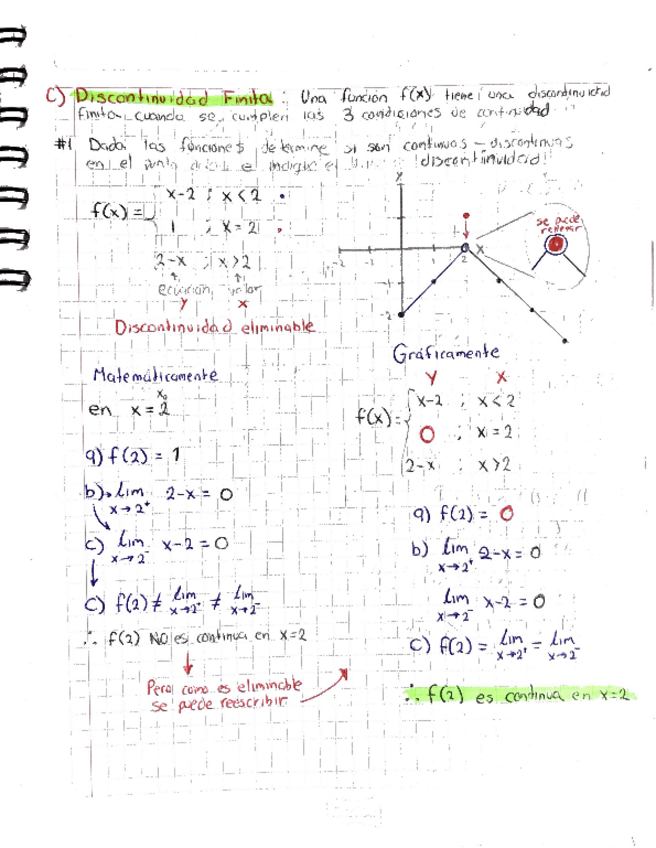 C) Discontinuidad Finita : Una función f(x) tiene una discontinuidad
finita cuando se cumplen las 3 condiciones de continuidad
#1 Dada las funciones determine si son continuas - discontinuas
en el punto e indique el discontinuidad
f(x) =
x-2 ; x<2
1 ; x=2
2-x ; x>2
ecuación valor
y x
Discontinuidad eliminable
y
x
-2 -1 2
-1
-2
se puede
rellenar
Matemáticamente
x₀
en x = 2
a) f(2) = 1
b) lim 2-x = 0
x→2⁺
c) lim x-2 = 0
x→2⁻
c) f(2) ≠ lim ≠ lim
x→2⁺ x→2⁻
∴ f(2) NO es continua en x=2
Pero como es eliminable
se puede reescribir
Gráficamente
y x
f(x) =
x-2 ; x<2
0 ; x=2
2-x ; x>2
a) f(2) = 0
b) lim 2-x = 0
x→2⁺
lim x-2 = 0
x→2⁻
c) f(2) = lim = lim
x→2⁺ x→2⁻
∴ f(2) es continua en x=2